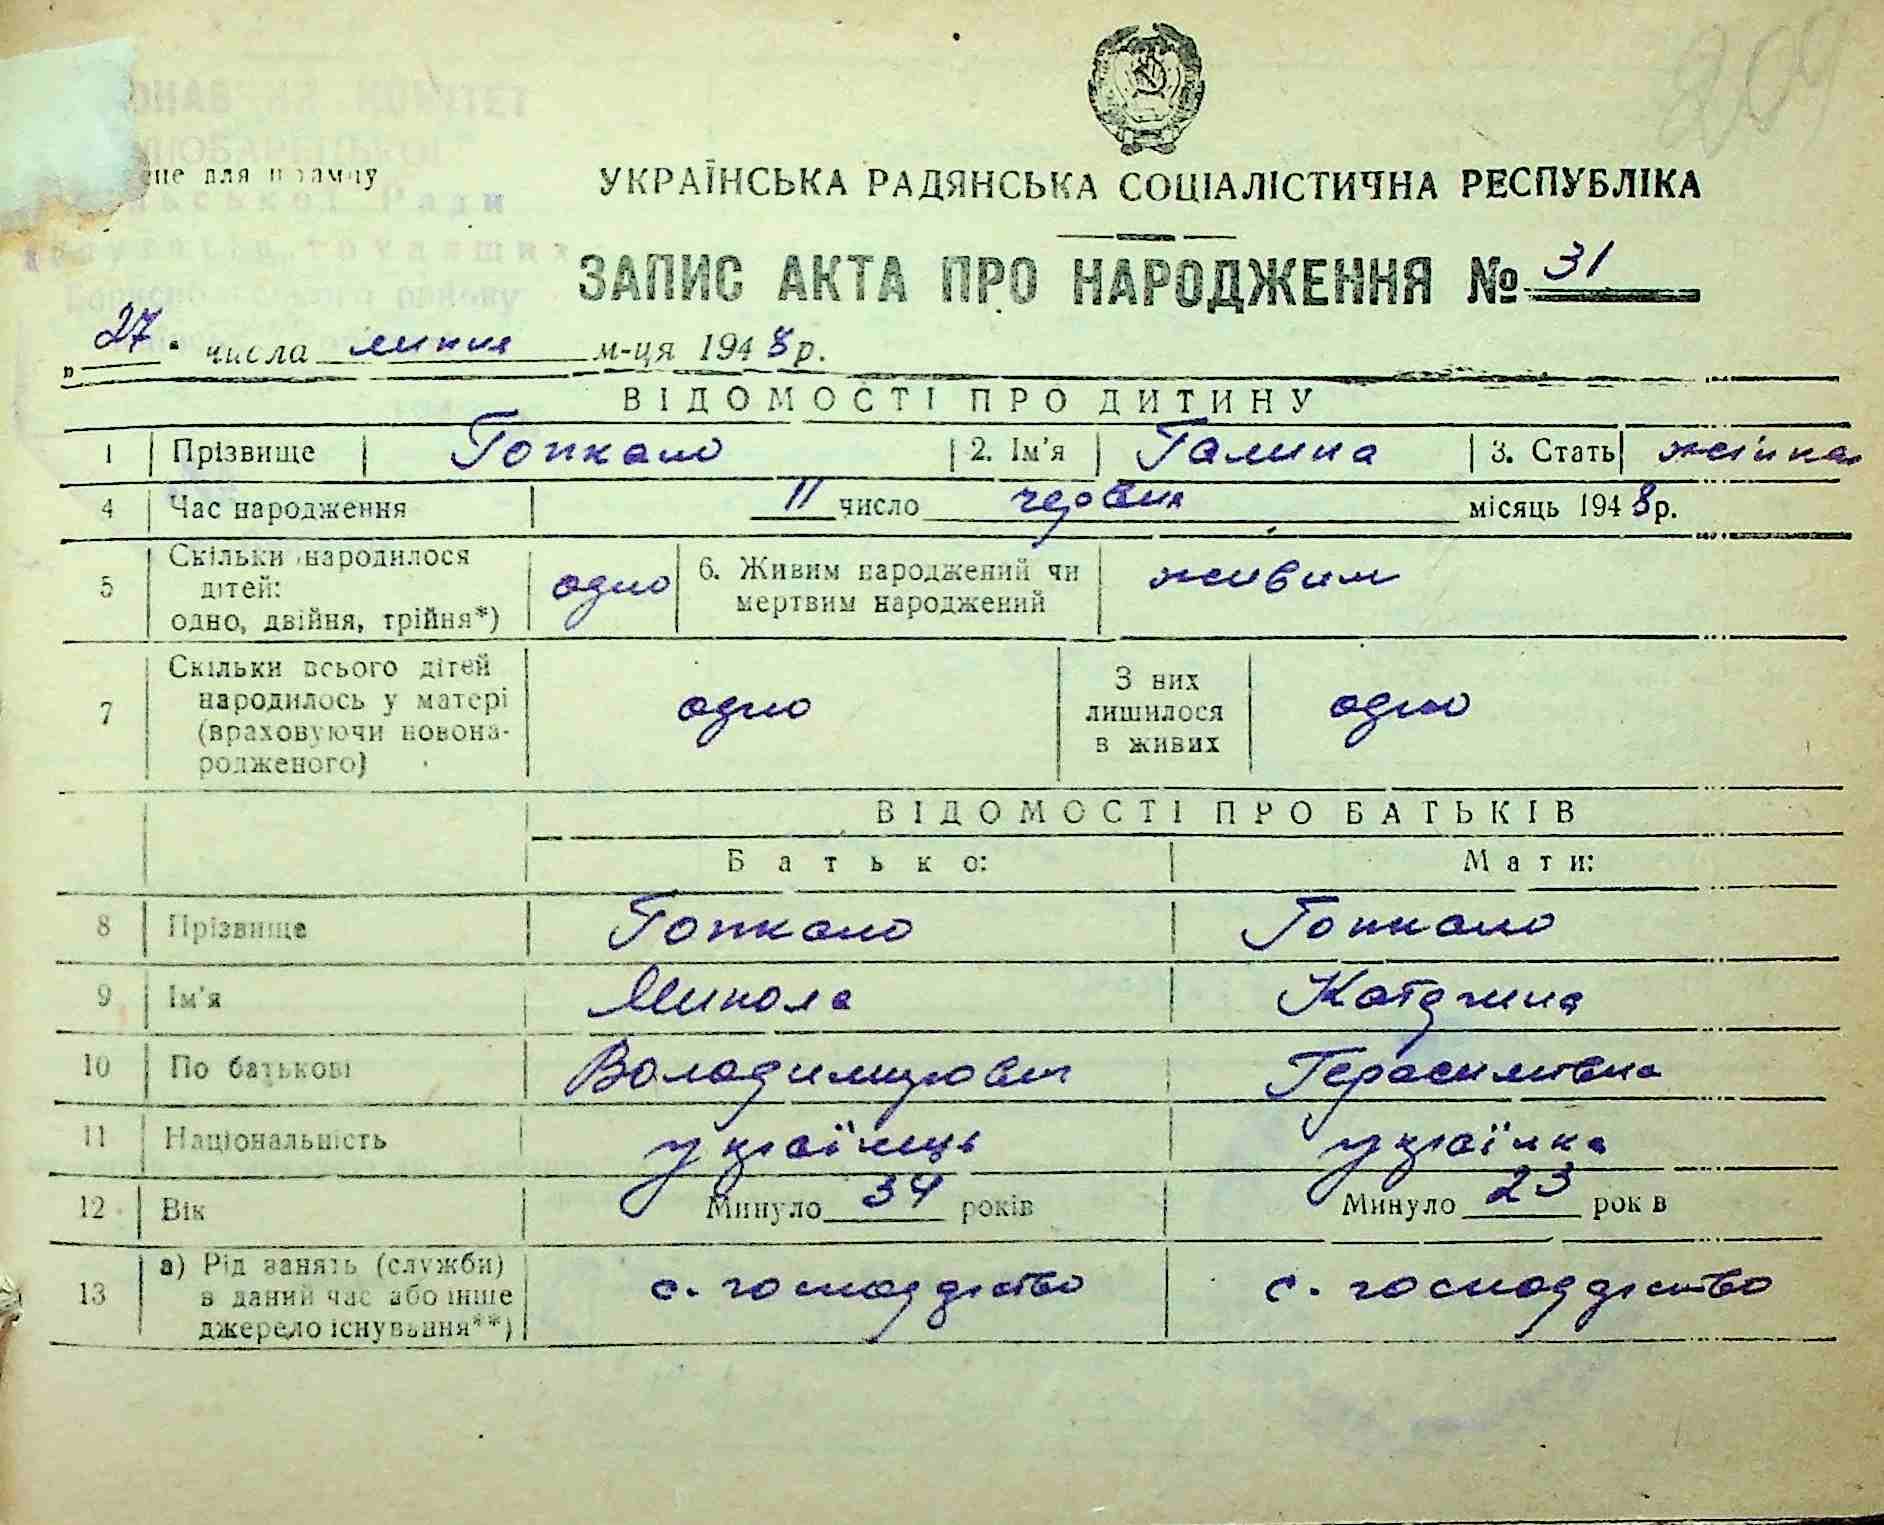 209
для штампу
УКРАЇНСЬКА РАДЯНСЬКА СОЦІАЛІСТИЧНА РЕСПУБЛІКА
ЗАПИС АКТА ПРО НАРОДЖЕННЯ № 31
„ 27 " числа липня м-ця 1948 р.
ВІДОМОСТІ ПРО ДИТИНУ
1 Прізвище Гопкало 2. Ім'я Галина 3. Стать жінка
4 Час народження 11 число червня місяць 1948 р.
5 Скільки народилося дітей: одно, двійня, трійня*) одно 6. Живим народжений чи мертвим народжений живим
7 Скільки всього дітей народилось у матері (враховуючи новонародженого) одно З них лишилося в живих одно
ВІДОМОСТІ ПРО БАТЬКІВ
Батько: Мати:
8 Прізвище Гопкало Гопкало
9 Ім'я Микола Катерина
10 По батькові Володимирович Герасимівна
11 Національність українець українка
12 Вік Минуло 34 років Минуло 23 рок в
13 а) Рід занять (служби) в даний час або інше джерело існування**) с. господарство с. господарство